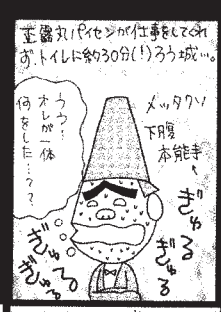 正露丸パイセンが仕事をしてくれ
ず、トイレに約30分(!)ろう城…。
メッタクソ
下腹
本能寺
うぅ…
オレが一体
何をした…？？
ぎゅる
ぎゅる
ぎゅる
ぎゅる